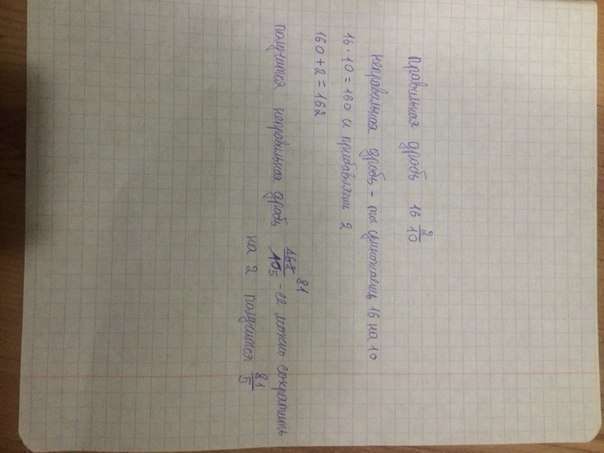 Правильная дробь 16 2/10
неправильная дробь - мы умножаем 16 на 10
16·10=160 и прибавляем 2
160+2=162
получится неправильная дробь 162/10 81/5 - её можно сократить
на 2 получится 81/5